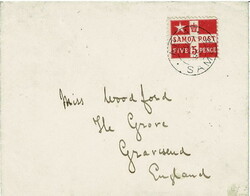 SAMOA POST
FIVE 5 PENCE
SAM
Miss Woodford
The Grove
Gravesend
England